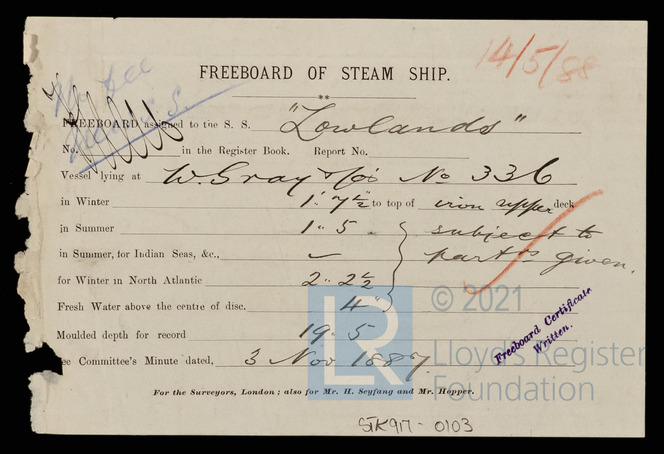 14/5/88
FREEBOARD OF STEAM SHIP.
FREEBOARD assigned to the S. S. "Lowlands"
No. in the Register Book. Report No.
Vessel lying at W. Gray & Co's No 336
in Winter 1 " 7 1/2 to top of iron upper deck
in Summer 1 " 5 subject to
in Summer, for Indian Seas, &c., part rs given.
for Winter in North Atlantic 2 " 2 1/2
Fresh Water above the centre of disc. 4
Moulded depth for record 19 . 5
ee Committee's Minute dated, 3 Nov 1887.
Freeboard Certificate
Written.
For the Surveyors, London ; also for Mr. H. Seyfang and Mr. Hopper.
STK917-0103
LR
© 2021
Lloyds Register
Foundation